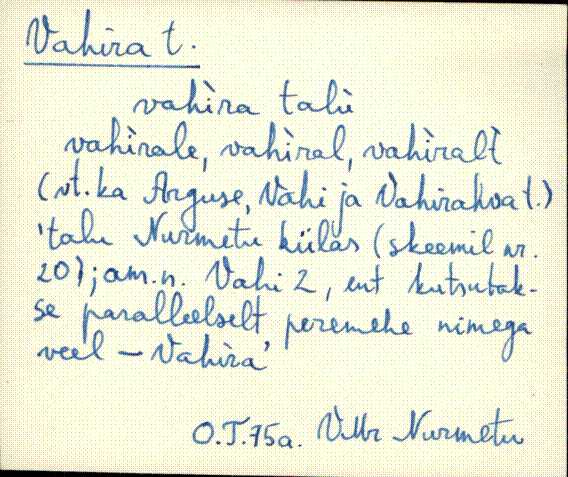 Vahira t.
vahìra talù
vahìrale, vahìral, vahìralt
(vt. ka Arguse, Vahi ja Vahirahva t.)
'talu Nurmetu külas (skeemil nr.
20); am.n. Vahi 2, ent kutsutak-
se paralleelselt peremehe nimega
veel – Vahìra'
O.T.75a. VMr Nurmetu